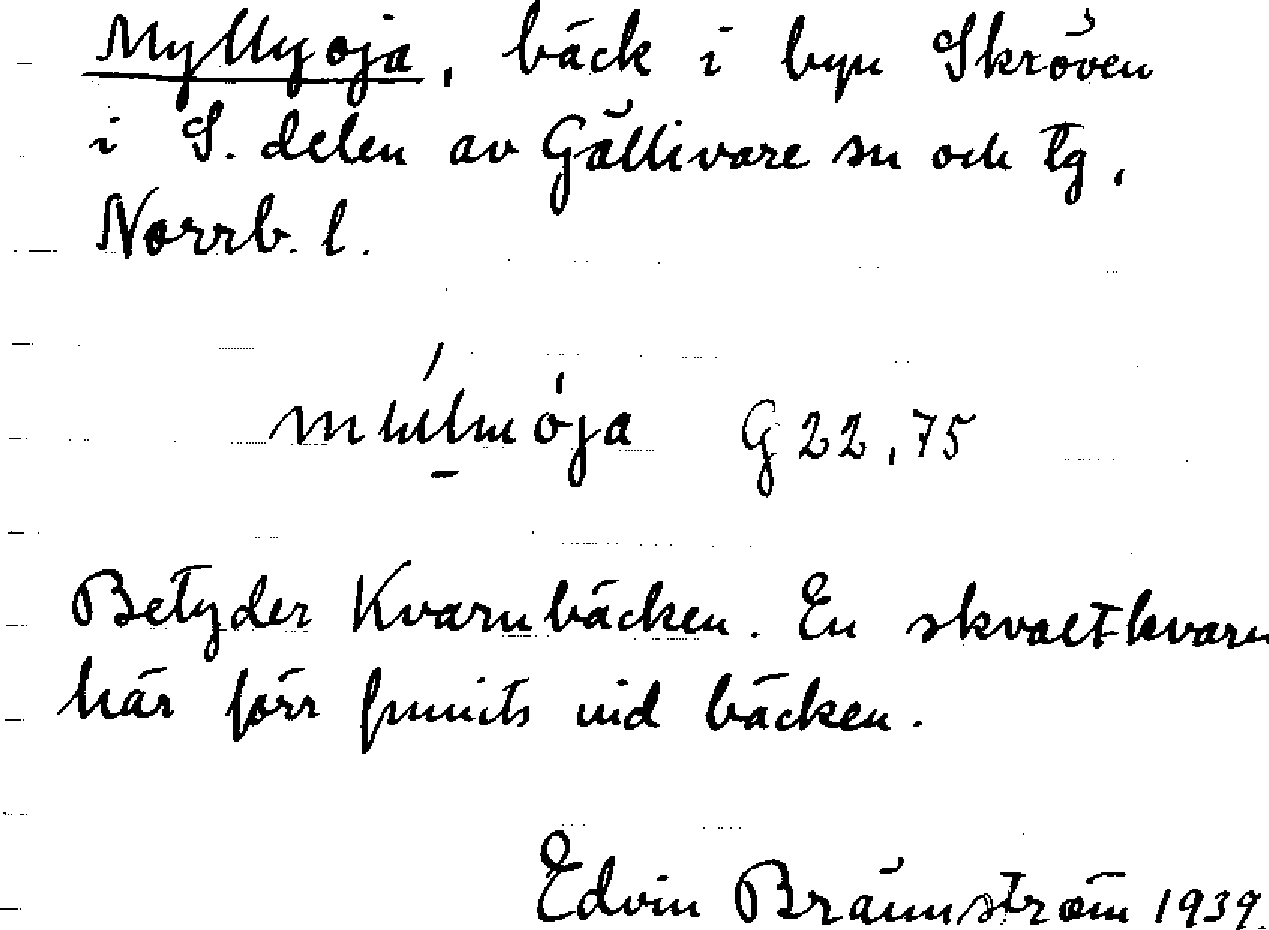 Myllyoja, bäck i byn Skröven
i S. delen av Gällivare sn och tg,
Norrb. l.
G 22,75
Betyder Kvarnbäcken. En skvaltkvarn
här förr funnits vid bäcken.
Edvin Brännström 1939.